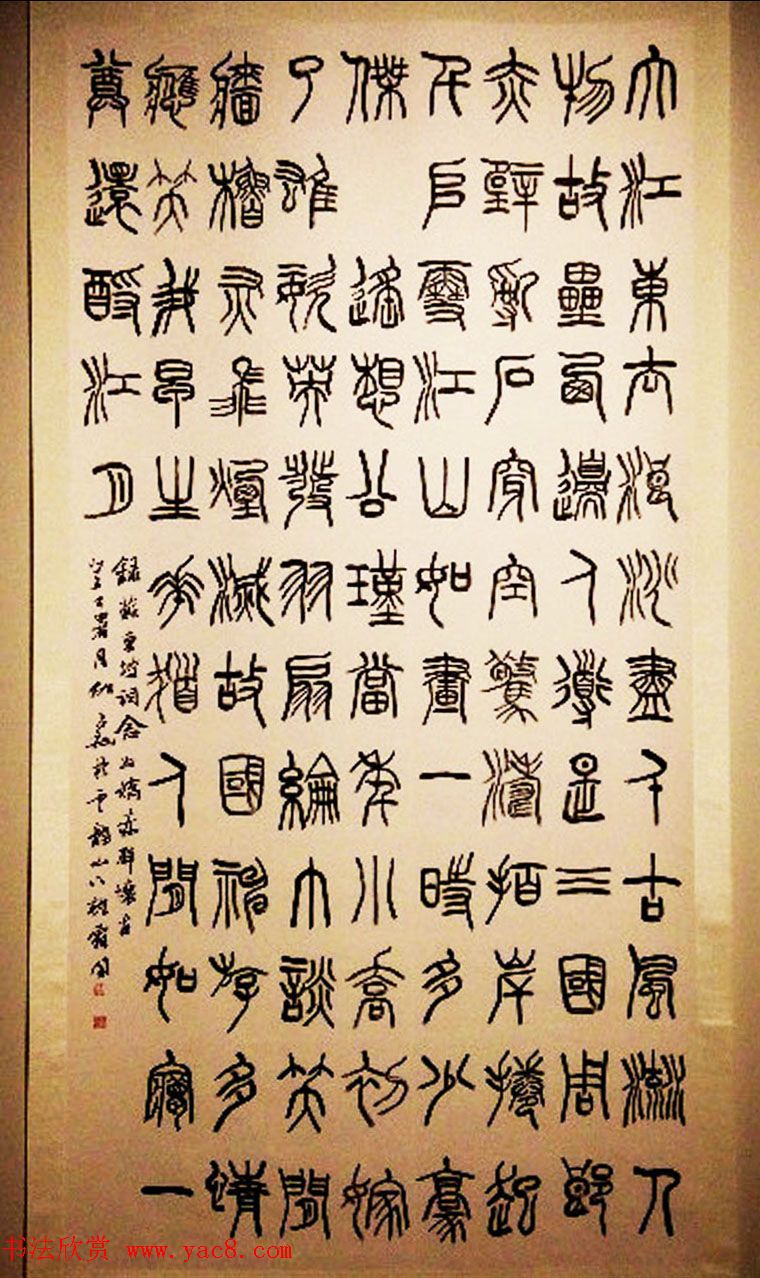 大江東去浪淘盡千古風流人
物故壘西邊人道是三國周郎
赤壁亂石穿空驚濤拍岸捲起
千堆雪江山如畫一時多少豪
傑 遙想公瑾當年小喬初嫁
了雄姿英發羽扇綸巾談笑間
牆櫓灰飛煙滅故國神遊多情
應笑我早生華髮人間如夢一
尊還酹江月
錄蘇東坡詞念奴嬌赤壁懷古
於雲龍山下
书法欣赏 www.yac8.com